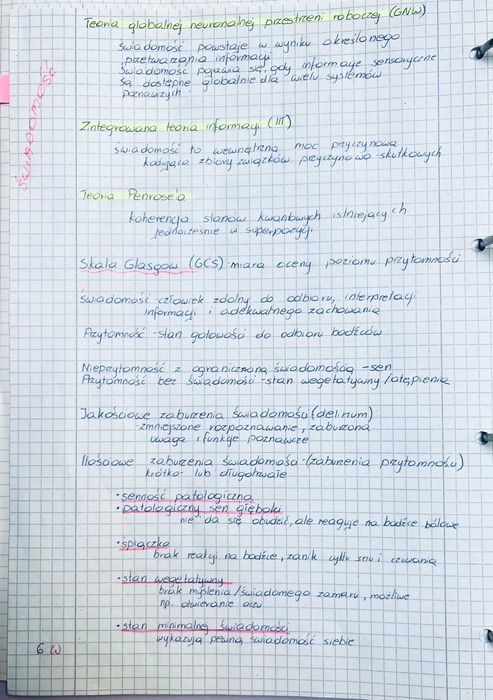 Teoria globalnej neuronalnej przestrzeni roboczej (GNW)
świadomość powstaje w wyniku określonego
przetwarzania informacji
świadomość pojawia się, gdy informacje sensoryczne
są dostępne globalnie dla wielu systemów
poznawczych
ŚWIADOMOŚĆ
Zintegrowana teoria informacji (IIT)
świadomość to wewnętrzna moc przyczynowa
kodująca zbiory związków przyczynowo-skutkowych
Teoria Penrose'a
koherencja stanów kwantowych istniejących
jednocześnie w superpozycji
Skala Glasgow (GCS)-miara oceny poziomu przytomności
Świadomość-człowiek zdolny do odbioru, interpretacji
informacji i adekwatnego zachowania
Przytomność-stan gotowości do odbioru bodźców
Nieprzytomność z ograniczoną świadomością-sen
Przytomność bez świadomości-stan wegetatywny/otępienie
Jakościowe zaburzenia świadomości (delirium)
-zmniejszone rozpoznawanie, zaburzona
uwaga i funkcje poznawcze
Ilościowe zaburzenia świadomości-(zaburzenia przytomności)
krótko- lub długotrwałe
• senność patologiczna
• patologiczny sen głęboki
nie da się obudzić, ale reaguje na bodźce bólowe
• śpiączka
brak reakcji na bodźce, zanik cyklu snu i czuwania
• stan wegetatywny
brak myślenia/świadomego zamiaru, możliwe
np. otwieranie oczu
• stan minimalnej świadomości
wykazują pewną świadomość siebie
6 W